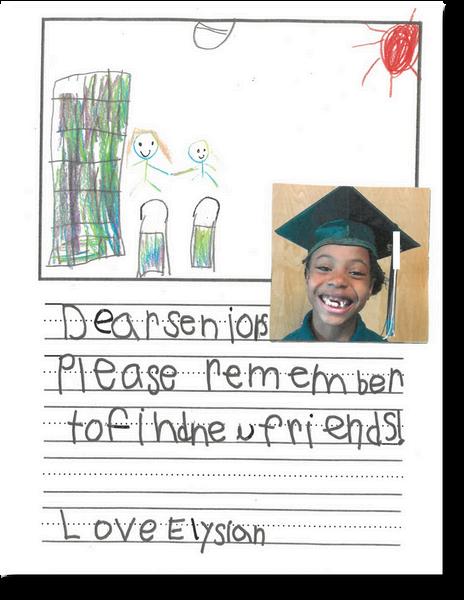 Dear seniors
Please remember
to find new friends!
Love Elysian